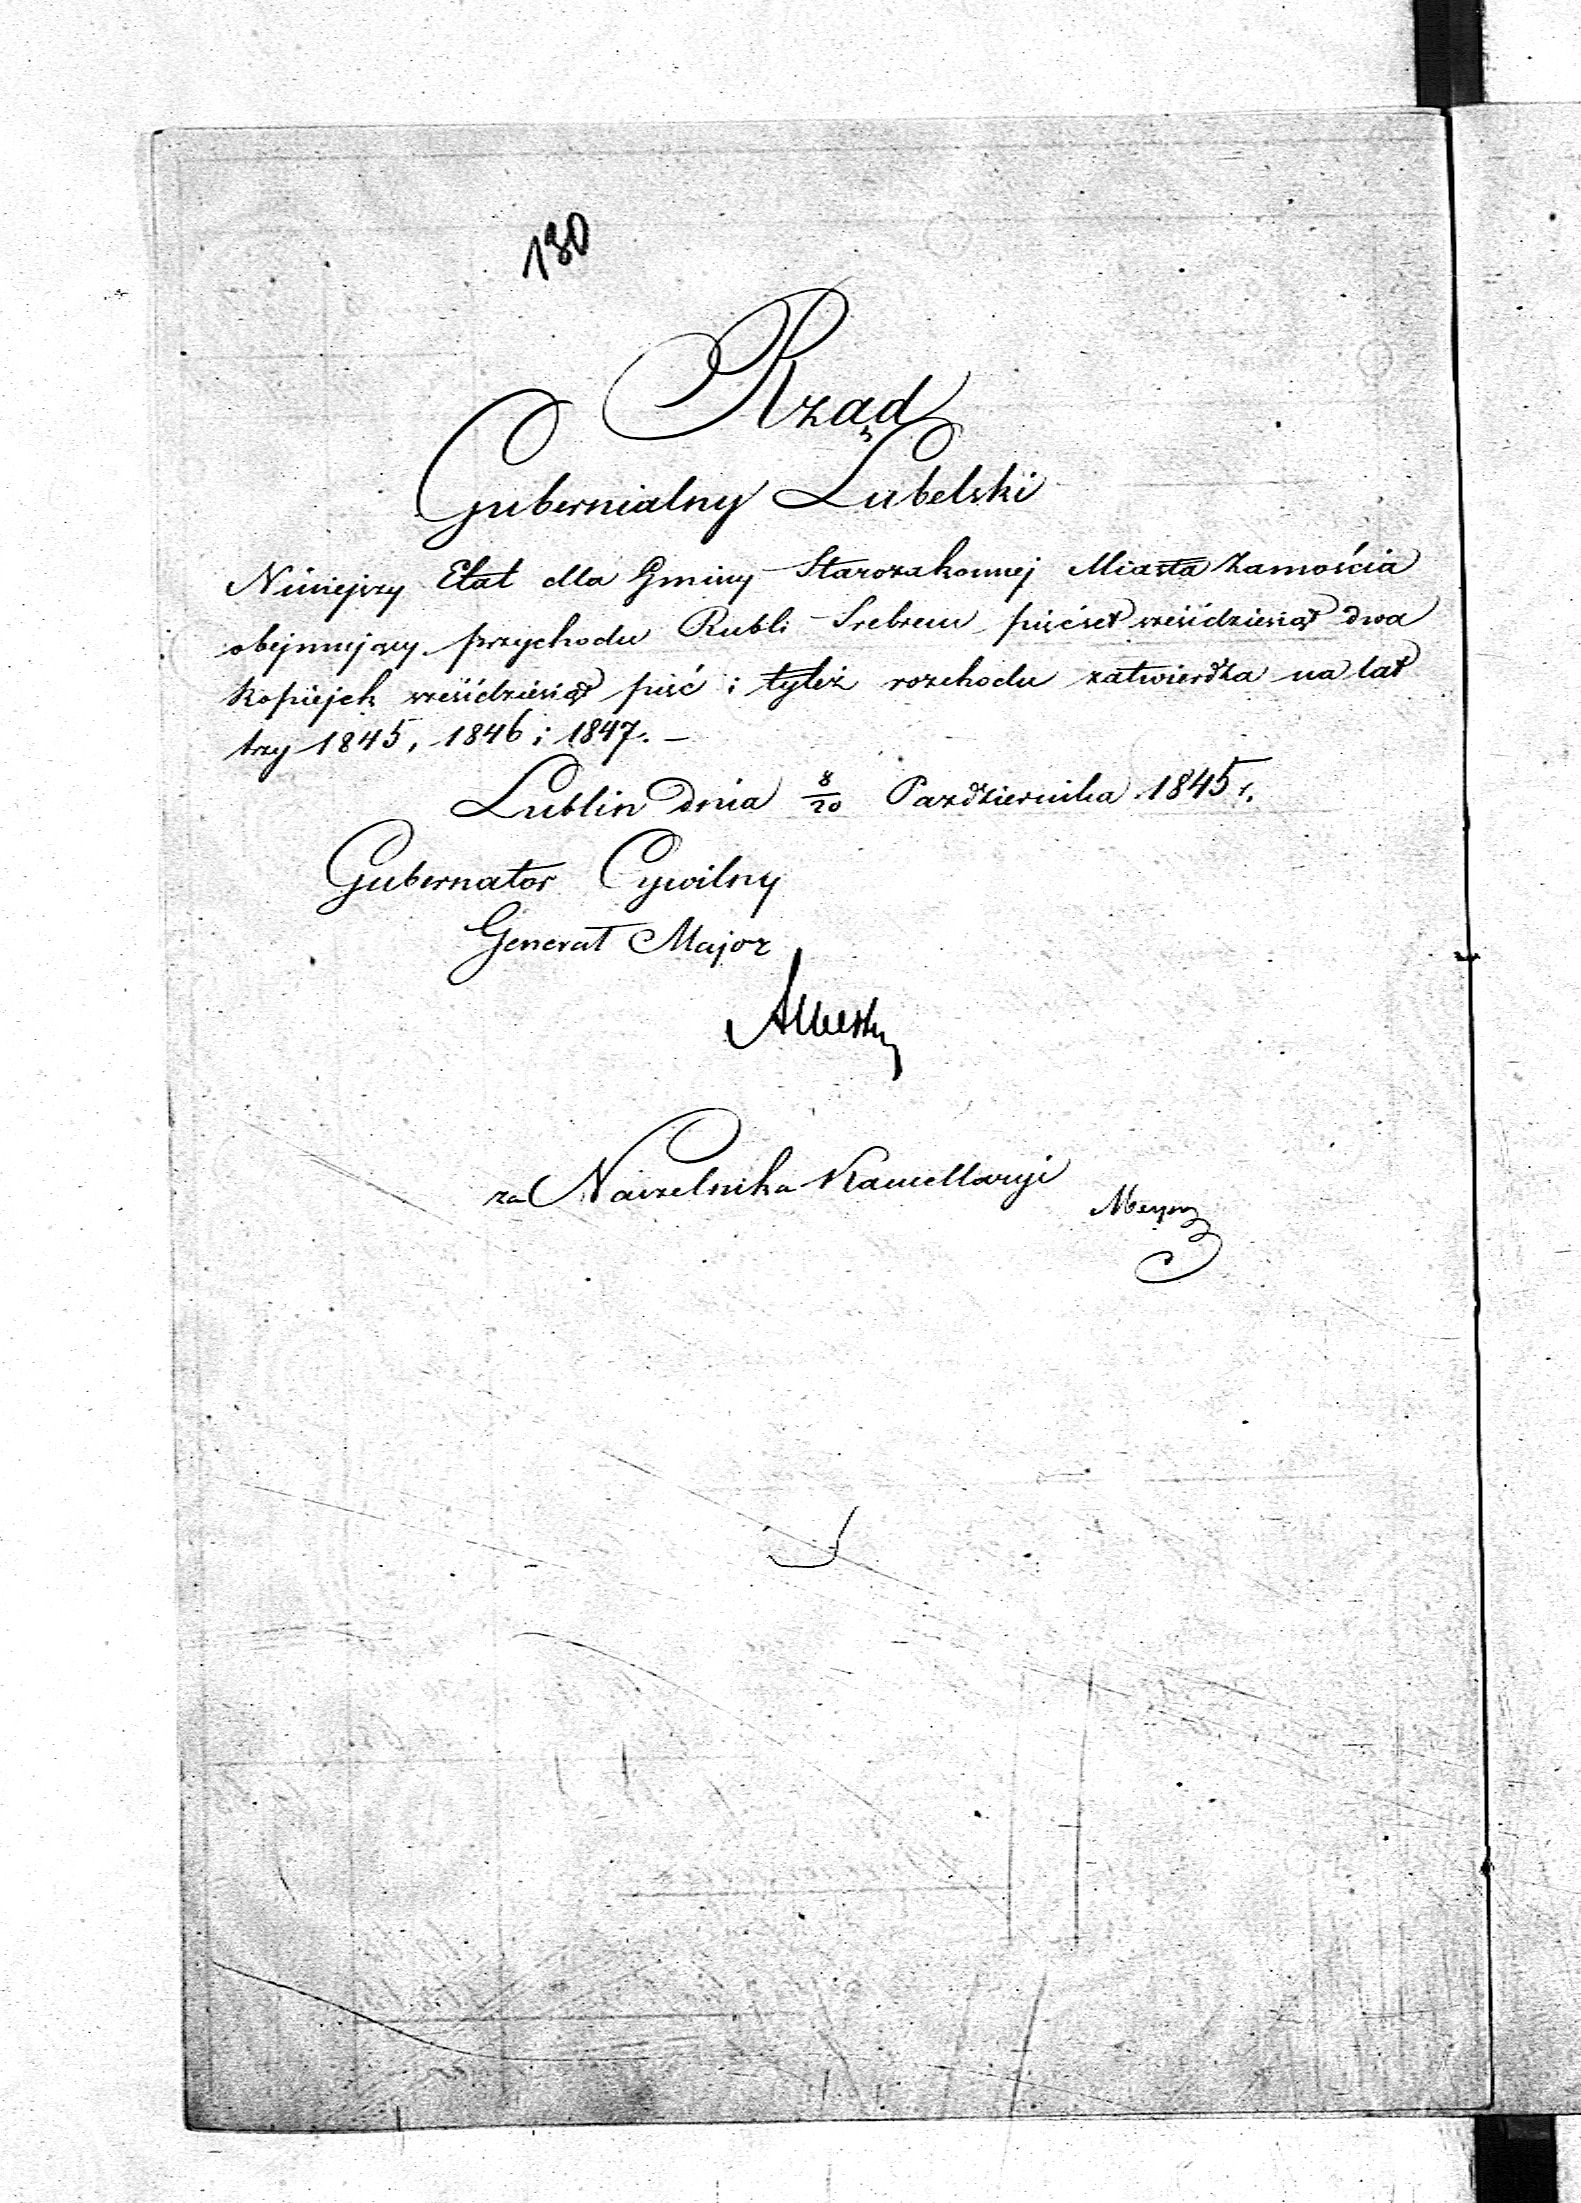 130
Rząd
Gubernialny Lubelski
Niniejszy Etat dla Gminy Starozakonnej Miasta Zamościa
obejmujący przychodu Rubli Srebrem pięćset sześćdziesiąt dwa
kopiejek sześćdziesiąt pięć i tyleż rozchodu zatwierdza na lat
trzy 1845, 1846 i 1847. —
Lublin dnia 8/20 Października 1845 r.
Gubernator Cywilny
Generał Major
za Naczelnika Kancellaryi